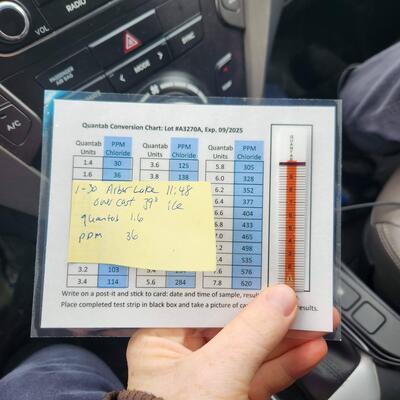 RADIO
VOL
PASSENGER
AIR BAG
MODE
SYNC
A/C
Quantab Conversion Chart: Lot #A3270A, Exp. 09/2025
Quantab Units PPM Chloride Quantab Units PPM Chloride Quantab Units PPM Chloride
1.4 30 3.6 125 5.8 305
1.6 36 3.8 138 6.0 328
6.2 352
6.4 377
6.6 404
6.8 433
7.0 465
7.2 498
7.4 535
3.2 103 7.6 576
3.4 114 5.6 284 7.8 620
1-30 Arbor Lake 11:48
Over cast 39° Ice
quantab 1.6
ppm 36
QUANTAB
Write on a post-it and stick to card: date and time of sample, results.
Place completed test strip in black box and take a picture of car results.